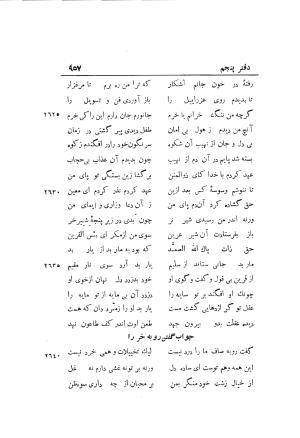 دفتر پنجم ۹۵۷
رفتهٔ در خون جانم آشکار که ترا من ره برم تا مرغزار
تا بدیدم روی عزراییل را باز آوردی فن و تسویل را
۲۶۲۵ گرچه من ننگ خرانم یا خرم جانورم جان دارم این را کی خرم
آنچ من دیدم ز هول بی امان طفل دیدی پیر گشتی در زمان
بی دل و جان از نهیب آن شکوه سرنگون خود را در افکندم ز کوه
بسته شد پایم در آن دم از نهیب چون بدیدم آن عذاب بی
عهد کردم با خدا کای ذوالمنن برگشا زین بستگی تو پای من
۲۶۳۰ تا ننوشم وسوسهٔ کس بعد ازین عهد کردم نذر کردم ای معین
حق گشاده کرد آن دم پای من ز آن دعا و زاری و ایمای من
ورنه اندر من رسیدی شیر نر چون بدی در زیر پنجهٔ شیر خر
باز بفرستادت آن شیر عرین سوی من از مکر ای بئس القرین
حق ذات پاک الله الصمد که بود به مار بد از یار بد
۲۶۳۵ مار بد جانی ستاند از سلیم یار بد آرد سوی نار مقیم
از قرین بی قول و گفت و گوی او خو بدزدد دل نهان از خوی او
چونک او افکند بر تو سایه را دزدد آن بی مایه از تو مایه را
عقل تو گر اژدهایی گشت مست یار بد او را زمرد دان که هست
دیدهٔ عقلت بدو بیرون جهد طعن اوت اندر کف طاعون نهد
جواب گفتن روبه خر را
۲۶۴۰ گفت روبه صاف ما را درد نیست لیک تخییلات وهمی خرد نیست
این همه وهم توست ای ساده دل ورنه بر تو نه غشی دارم نه غل
از خیال زشت خود منگر به من بر محبان از چه داری سوء ظن